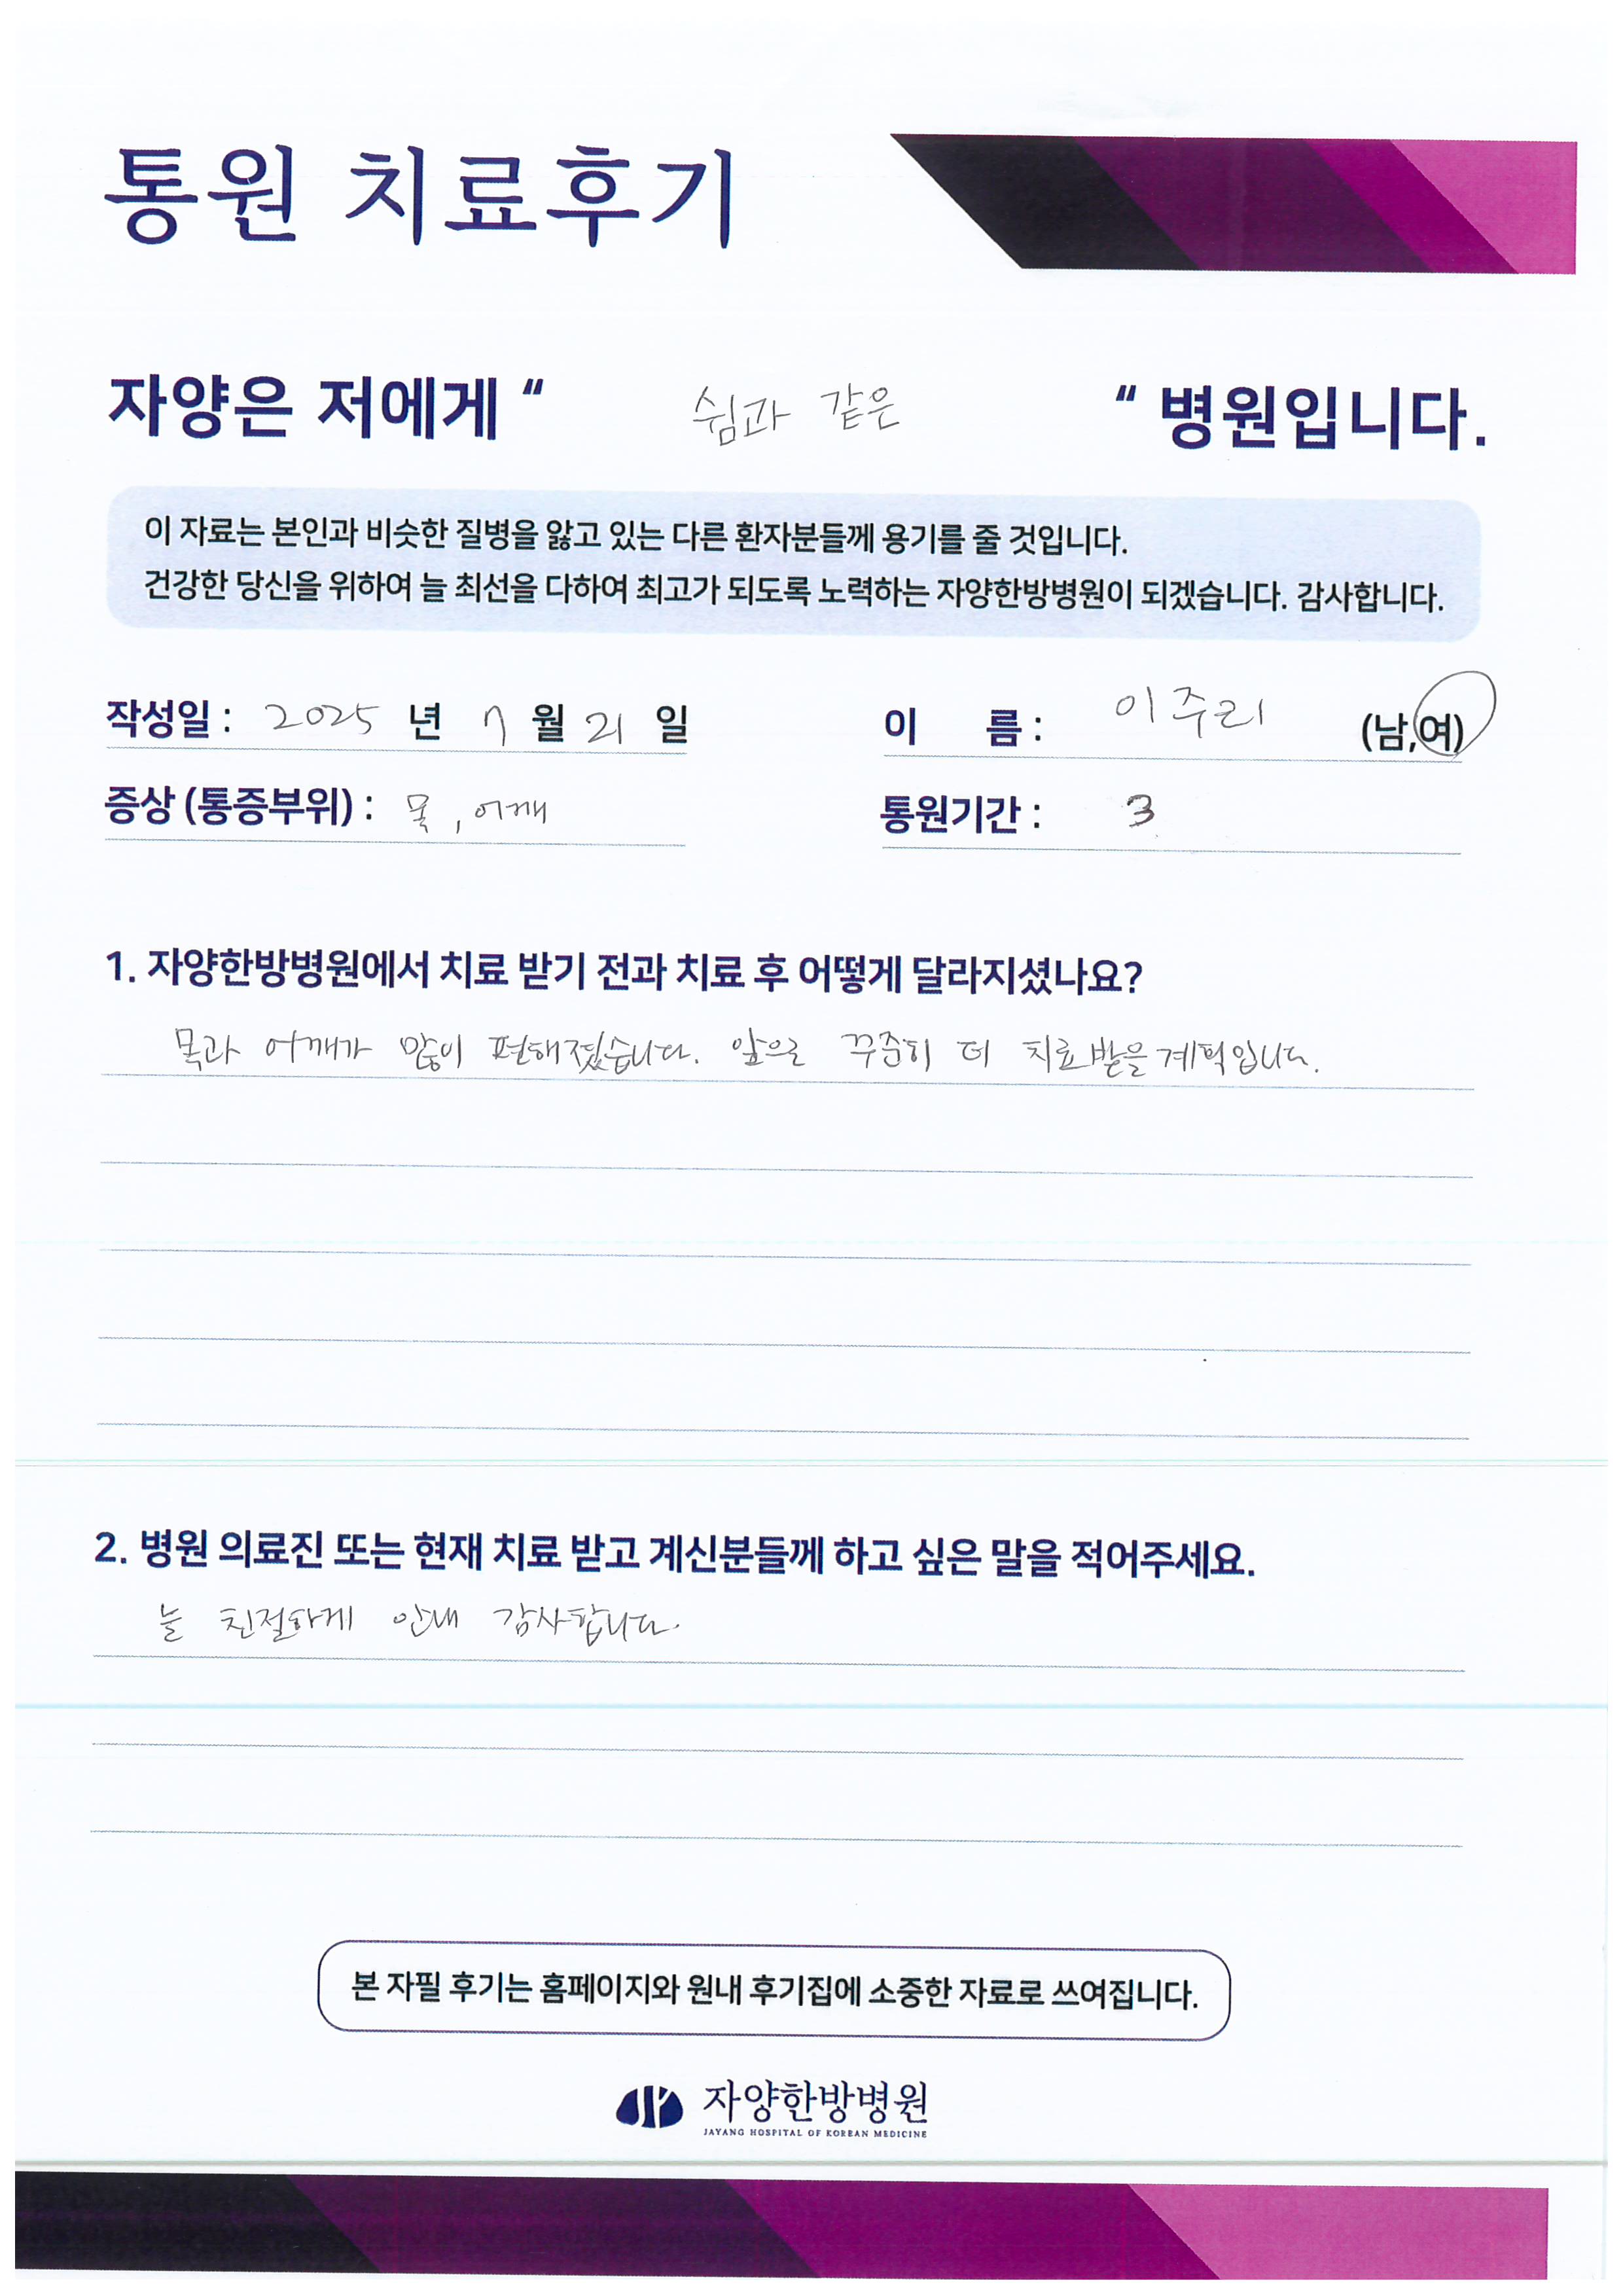 통원 치료후기
자양은 저에게 “ 쉼과 같은 “ 병원입니다.
이 자료는 본인과 비슷한 질병을 앓고 있는 다른 환자분들께 용기를 줄 것입니다.
건강한 당신을 위하여 늘 최선을 다하여 최고가 되도록 노력하는 자양한방병원이 되겠습니다. 감사합니다.
작성일 : 2025 년 7 월 21 일 이 름 : 이주리 (남,여)
증상 (통증부위) : 목, 어깨 통원기간 : 3
1. 자양한방병원에서 치료 받기 전과 치료 후 어떻게 달라지셨나요?
목과 어깨가 많이 편해졌습니다. 앞으로 꾸준히 더 치료받을 계획입니다.
2. 병원 의료진 또는 현재 치료 받고 계신분들께 하고 싶은 말을 적어주세요.
늘 친절하게 안내 감사합니다.
본 자필 후기는 홈페이지와 원내 후기집에 소중한 자료로 쓰여집니다.
자양한방병원
JAYANG HOSPITAL OF KOREAN MEDICINE